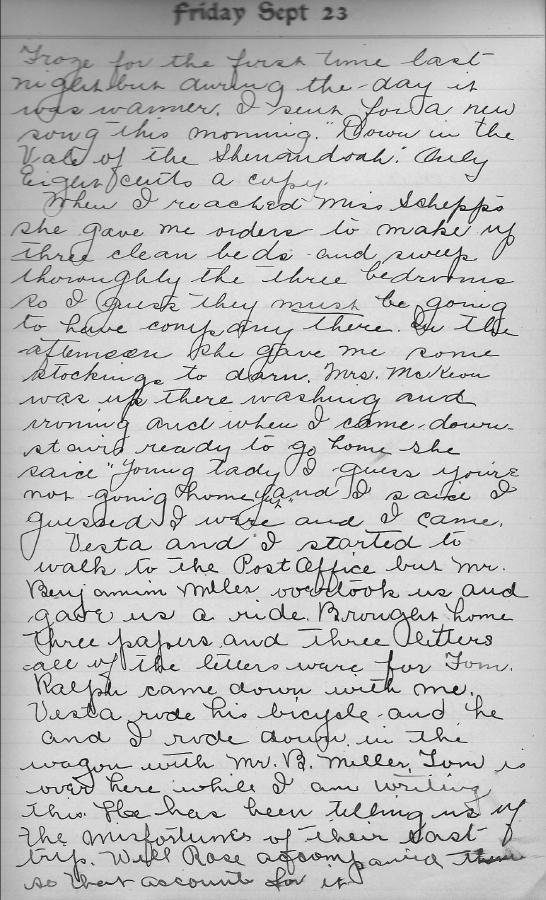 Friday Sept 23
Froze for the first time last
night but during the day it
was warmer. I sent for a new
song this morning. "Down in the
Vale of the Shenandoah". Only
Eight cents a copy.
When I reached Miss Schepp's
she gave me orders to make up
three clean beds and sweep
thoroughly the three bedrooms
so I guess they must be going
to have company there. In the
afternoon she gave me some
stockings to darn. Mrs. McKeon
was up there washing and
ironing and when I came down-
stairs ready to go home she
said "Young lady I guess you're
not going home yet" and I said I
guessed I were and I came.
Vesta and I started to
walk to the Post Office but Mr.
Benjamin Miller overtook us and
gave us a ride. Brought home
three papers and three letters
all of the letters were for Tom.
Ralph came down with me.
Vesta rode his bicycle and he
and I rode down in the
wagon with Mr. B. Miller. Tom is
over here while I am writing
this. He has been telling us of
the misfortunes of their last
trip. Will Rose accompanied them
so that account for it